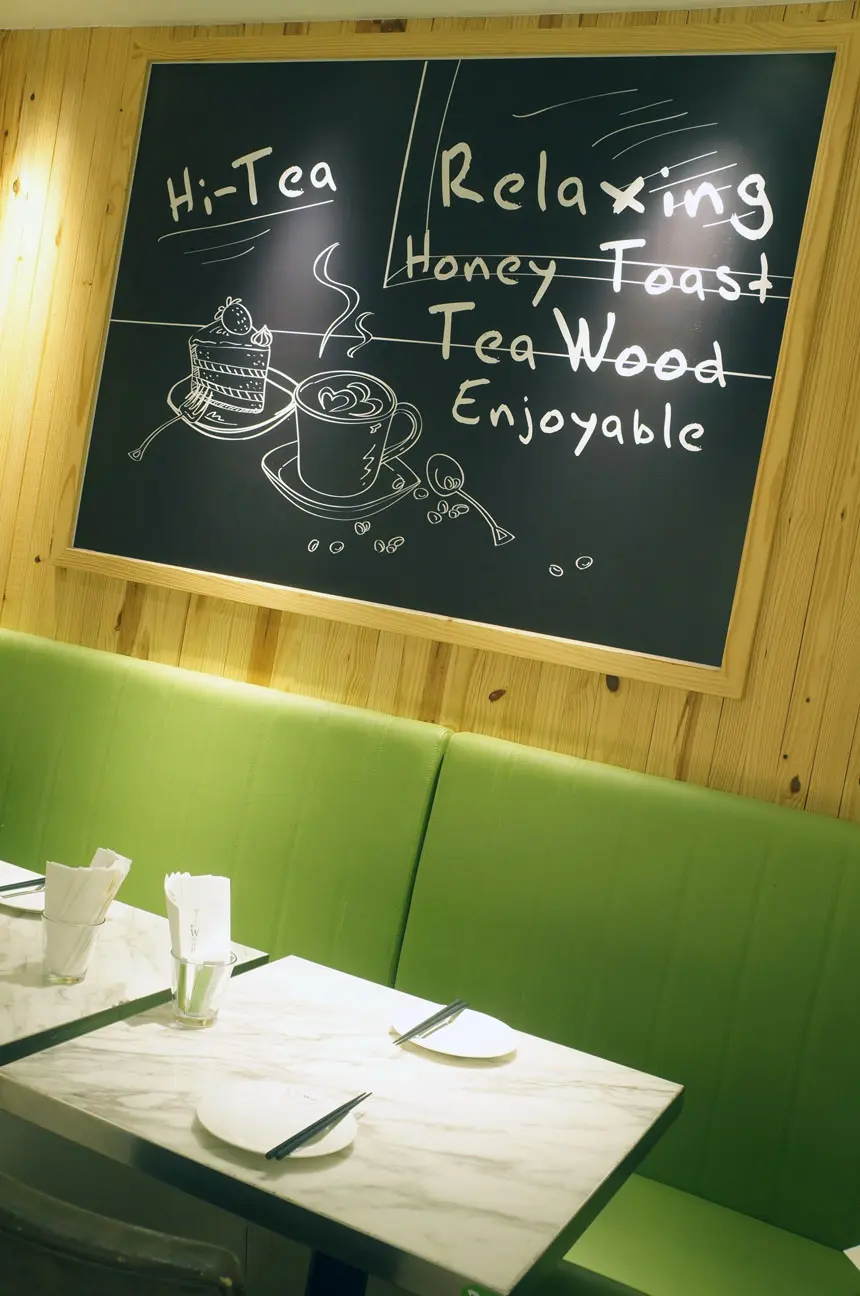 Hi-Tea
Relaxing
Honey Toast
Tea Wood
Enjoyable